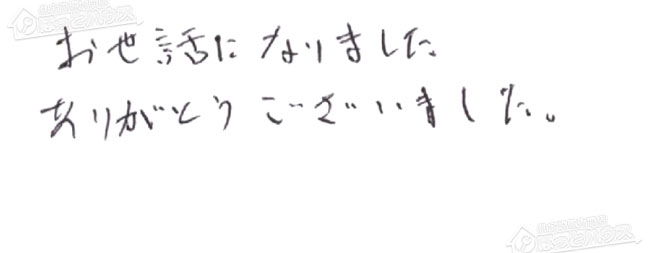 お世話になりました
ありがとうございました。